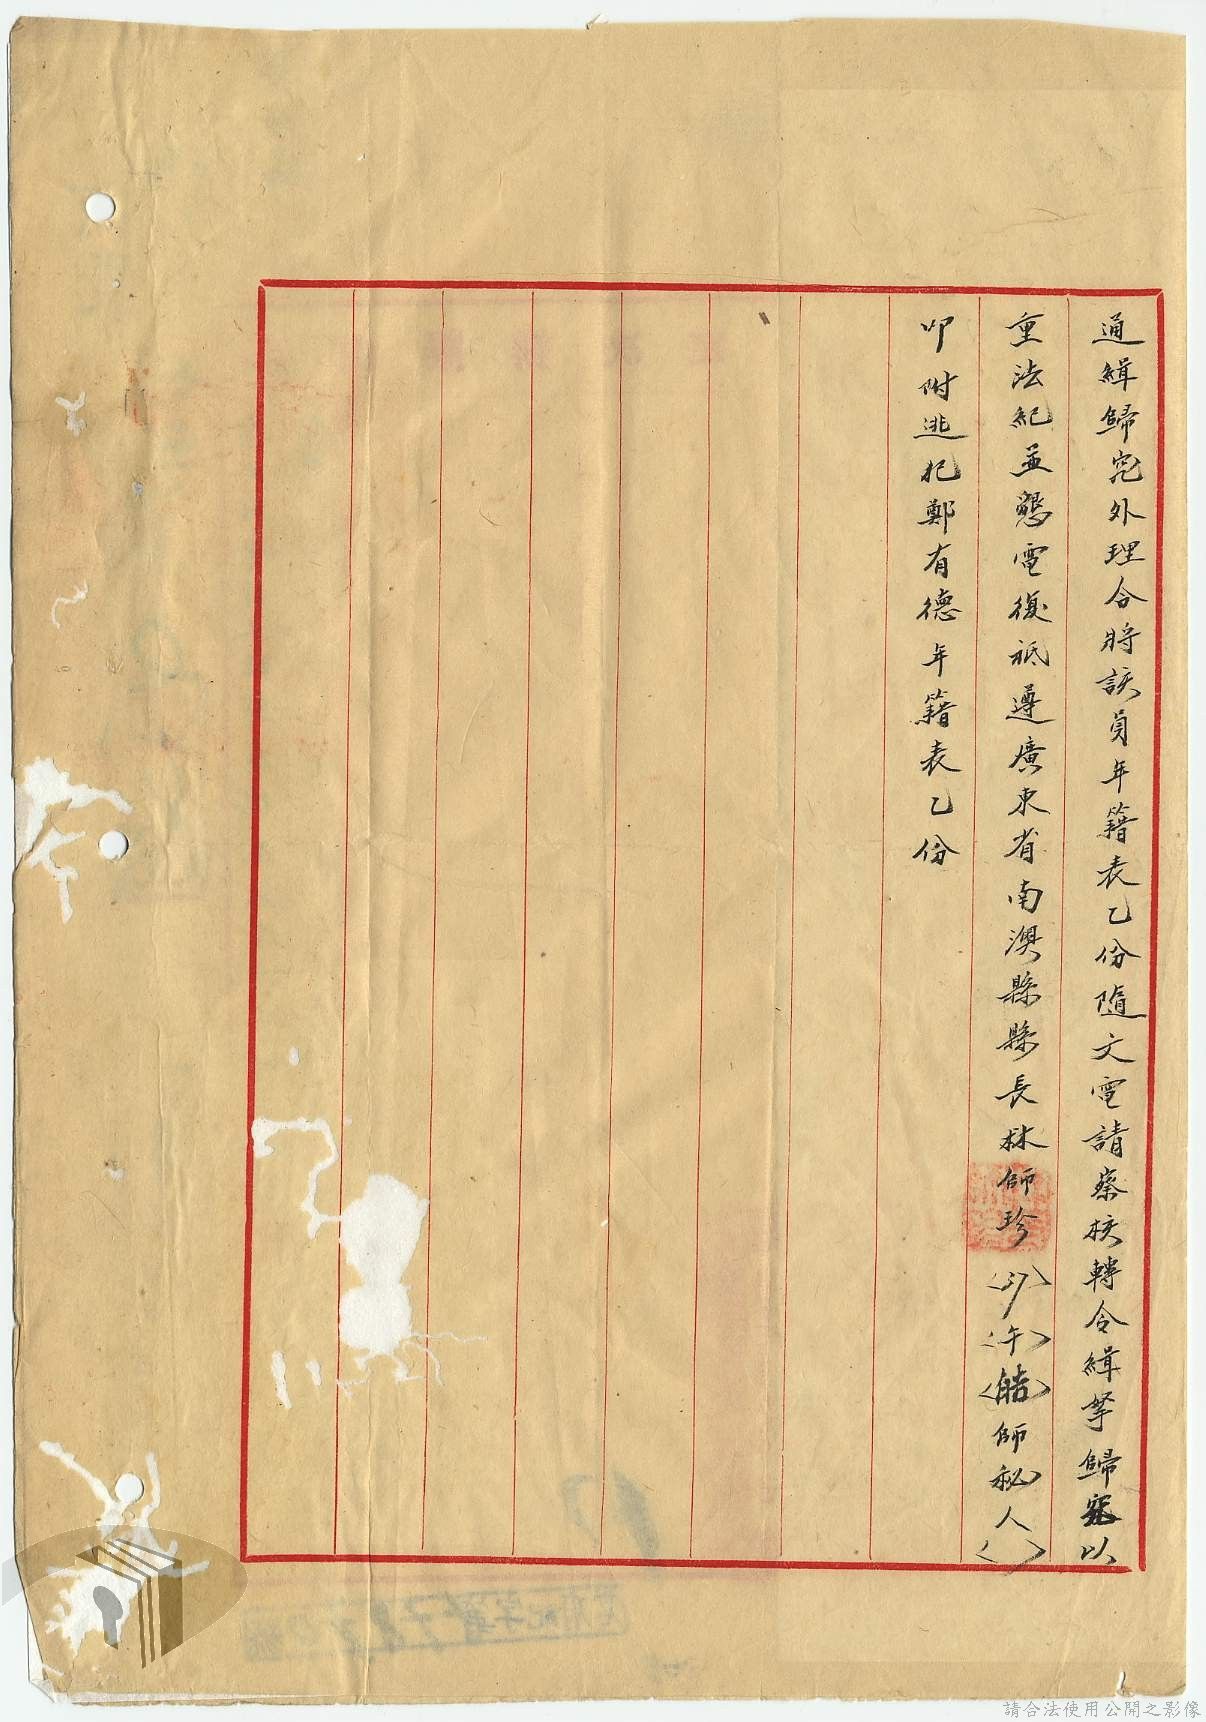 通緝歸究外理合將該員年籍表乙份隨文電請察核轉令緝拏歸究以
重法紀並懇電復祗遵廣東省南澳縣縣長林師珍〈37〉〈午〉〈皓〉師秘人〈〉
叩附逃犯鄭有德年籍表乙份
請合法使用公開之影像